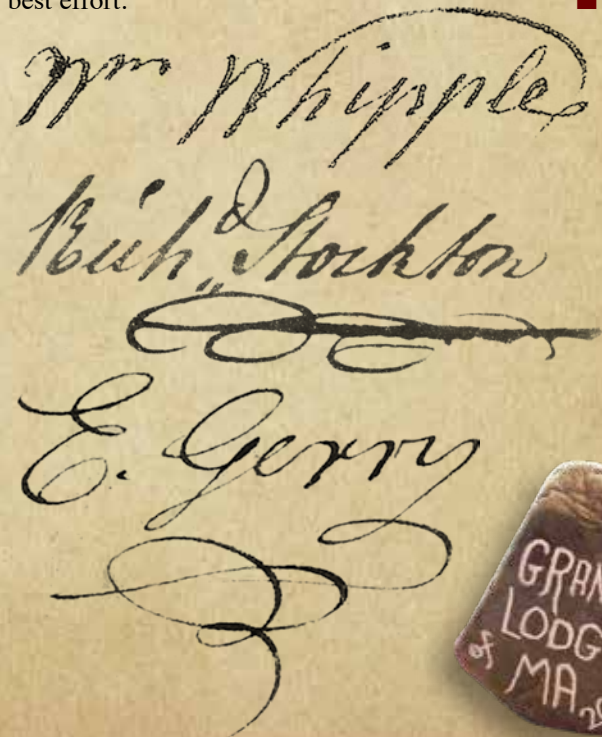 best effort.
Wm Whipple
Richd Stockton
E. Gerry
GRAN
LODG
of MA